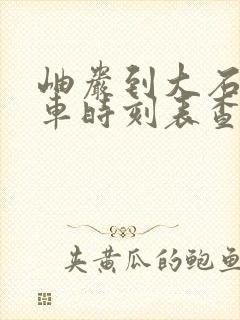 岫巖到大石
車時刻表查
夹黄瓜的鲍鱼